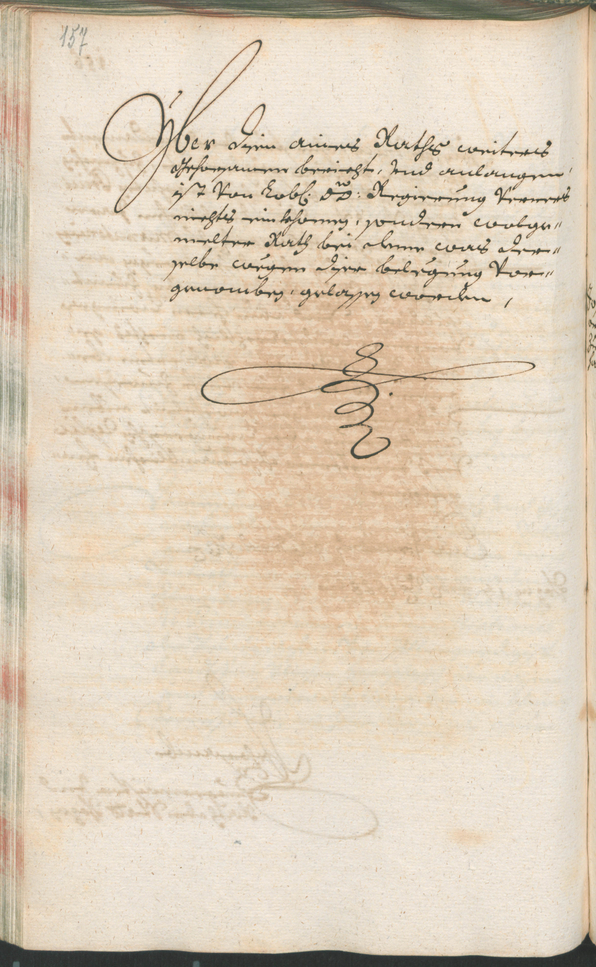 157
Yber dem aines Raths weiters
gehorsamen bericht, Und anlangen,
ist Von Lobl: Regierung Verrers
nichts einkhomen, sondern wolge„
melter Rath bei deme was der„
selbe wegen der belegung Vor„
genomben, gelassen worden,